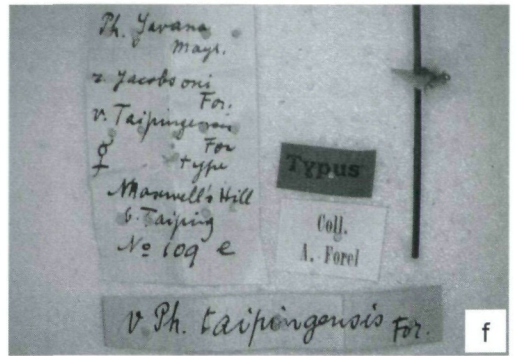 Ph. Javana
Mayr.
r. Jacobsoni
For.
v. Taipingensis
For
☿ type
Maxwell's Hill
b. Taiping
No 109 e
Typus
Coll.
A. Forel
v Ph. taipingensis For.
f